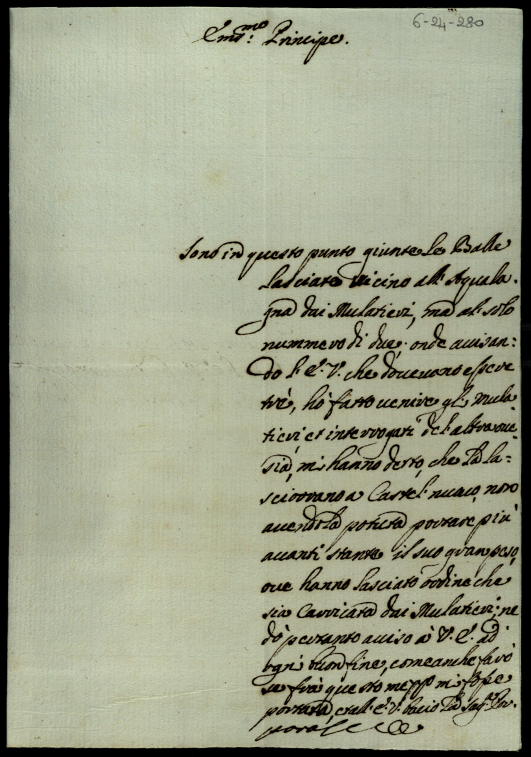 6-24-280
Em.mo Principe.
Sono in questo punto giunte le Balle
lasciate vicino all'Aquala-
gna dai Mulatieri, ma al solo
nummero di due. onde avisan-
do l'E. V. che dovevano essere
trè, hò fatto venire gl. Mula
tieri et interrogati del altra ove
sia, mi hanno detto, che la la-
sciorono a Castel nuovo, non
avendola potuta portare più
avanti stante il suo gran peso,
ove hanno lasciato ordine che
sia Carricata dai Mulatieri; ne
dò pertanto aviso à V. E. ad
ogni buon fine, come anche farò
se frà questo mi
portata, e all' E. V. bacio la Sag. Por-
pora